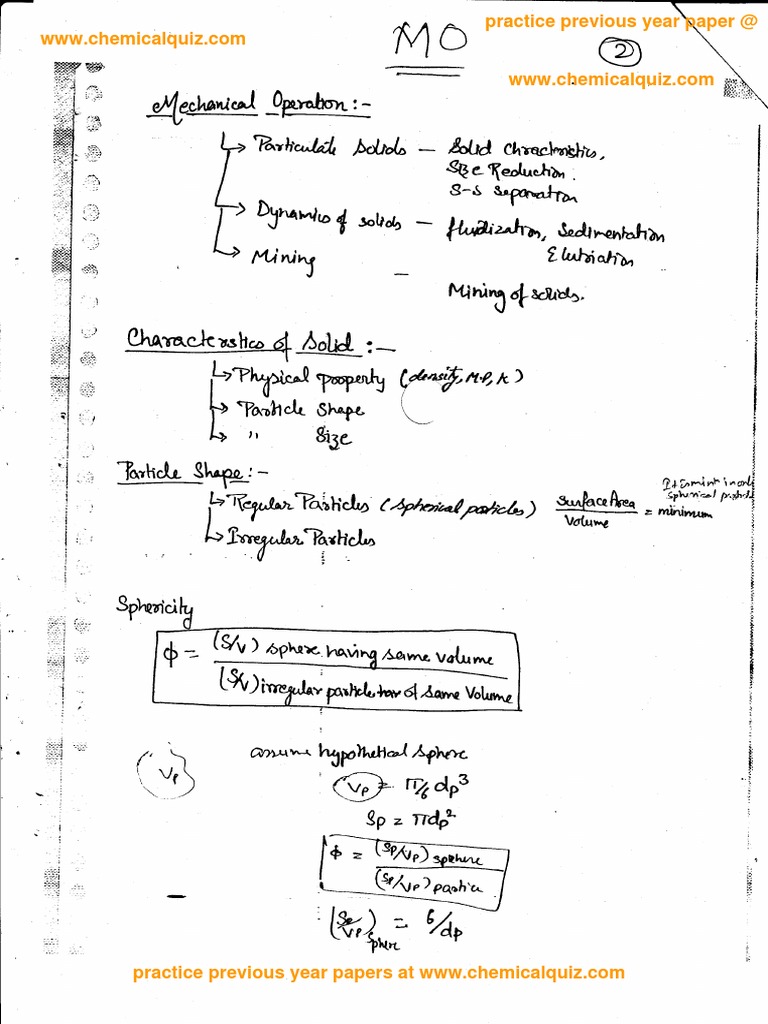 practice previous year paper @
www.chemicalquiz.com
MO
2
www.chemicalquiz.com
Mechanical Operation:-
↳ Particulate solids — Solid Chracteristics,
Size Reduction.
S-S separation
→ Dynamics of solids — fluidization, Sedimentation
Elutriation
→ Mining —
Mining of solids.
Characteristics of Solid :—
↳ Physical property (density, M.P, K)
→ Particle shape
→ " Size
Particle Shape:-
↳ Regular Particles (Spherical particles) Surface Area / Volume = minimum
spherical particle
↳ Irregular Particles
Sphericity
ϕ = (S/V) sphere having same volume / (S/V) irregular particle of same Volume
assume hypothetical sphere
Vp
Vp = π/6 dp³
Sp = πdp²
ϕ = (Sp/Vp) sphere / (Sp/Vp) particle
(Sp/Vp) sphere = 6/dp
practice previous year papers at www.chemicalquiz.com